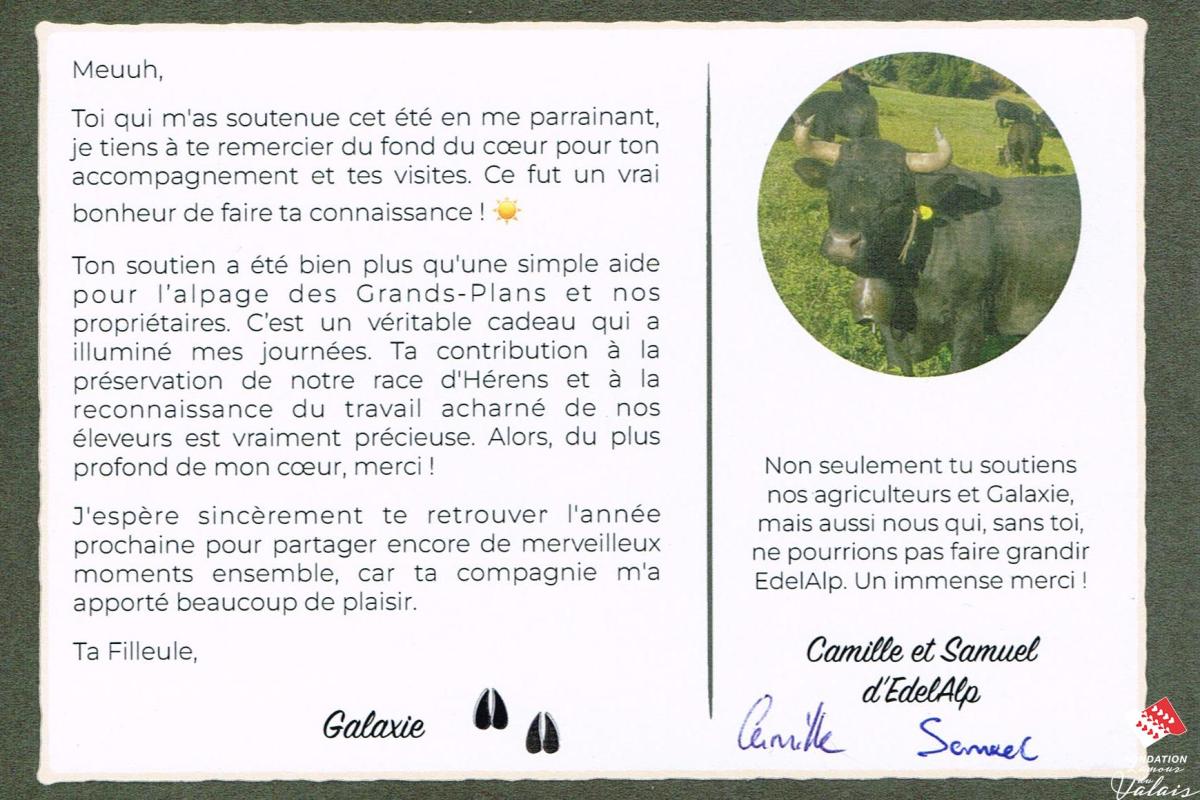 Meuuh,
Toi qui m'as soutenue cet été en me parrainant,
je tiens à te remercier du fond du cœur pour ton
accompagnement et tes visites. Ce fut un vrai
bonheur de faire ta connaissance ! ☀️
Ton soutien a été bien plus qu'une simple aide
pour l’alpage des Grands-Plans et nos
propriétaires. C’est un véritable cadeau qui a
illuminé mes journées. Ta contribution à la
préservation de notre race d'Hérens et à la
reconnaissance du travail acharné de nos
éleveurs est vraiment précieuse. Alors, du plus
profond de mon cœur, merci !
J'espère sincèrement te retrouver l'année
prochaine pour partager encore de merveilleux
moments ensemble, car ta compagnie m'a
apporté beaucoup de plaisir.
Ta Filleule,
Galaxie
Non seulement tu soutiens
nos agriculteurs et Galaxie,
mais aussi nous qui, sans toi,
ne pourrions pas faire grandir
EdelAlp. Un immense merci !
Camille et Samuel
d'EdelAlp
Camille Samuel
FONDATION
l'amour
du
Valais